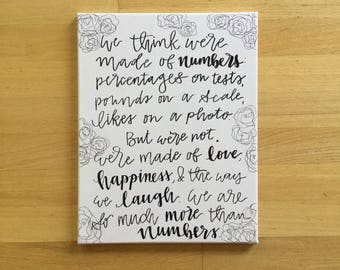 we think were
made of numbers.
percentages on tests,
pounds on a scale,
likes on a photo.
But were not.
were made of love,
happiness, & the way
we laugh. we are
so much more than
numbers.